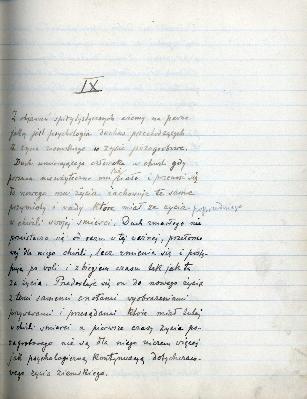 IX
Z seansów spirytystycznych wiemy na pewno
jaką jest psychologia duchów przechodzących
z życia ziemskiego w życie pozagrobowe.
Duch umierającego człowieka w chwili gdy
porzuca ciało i przenosi się
do nowego mu życia zachowuje te same
przymioty i wady które miał za życia
w chwili swojej śmierci. Duch zmarłego nie
się od razu w tej ważnej, przełomo-
wej dla niego chwili, lecz zmienia się i
po woli i z biegiem czasu tak jak tu
za życia. się on do nowego życia
z temi samemi cnotami wyobrażeniami
i przesądami które miał tutaj
w chwili śmierci a pierwsze czasy życia po-
zagrobowego nie są dla niego niczem więcej
jak psychologiczną kontynuacją dotychczaso-
wego życia ziemskiego.